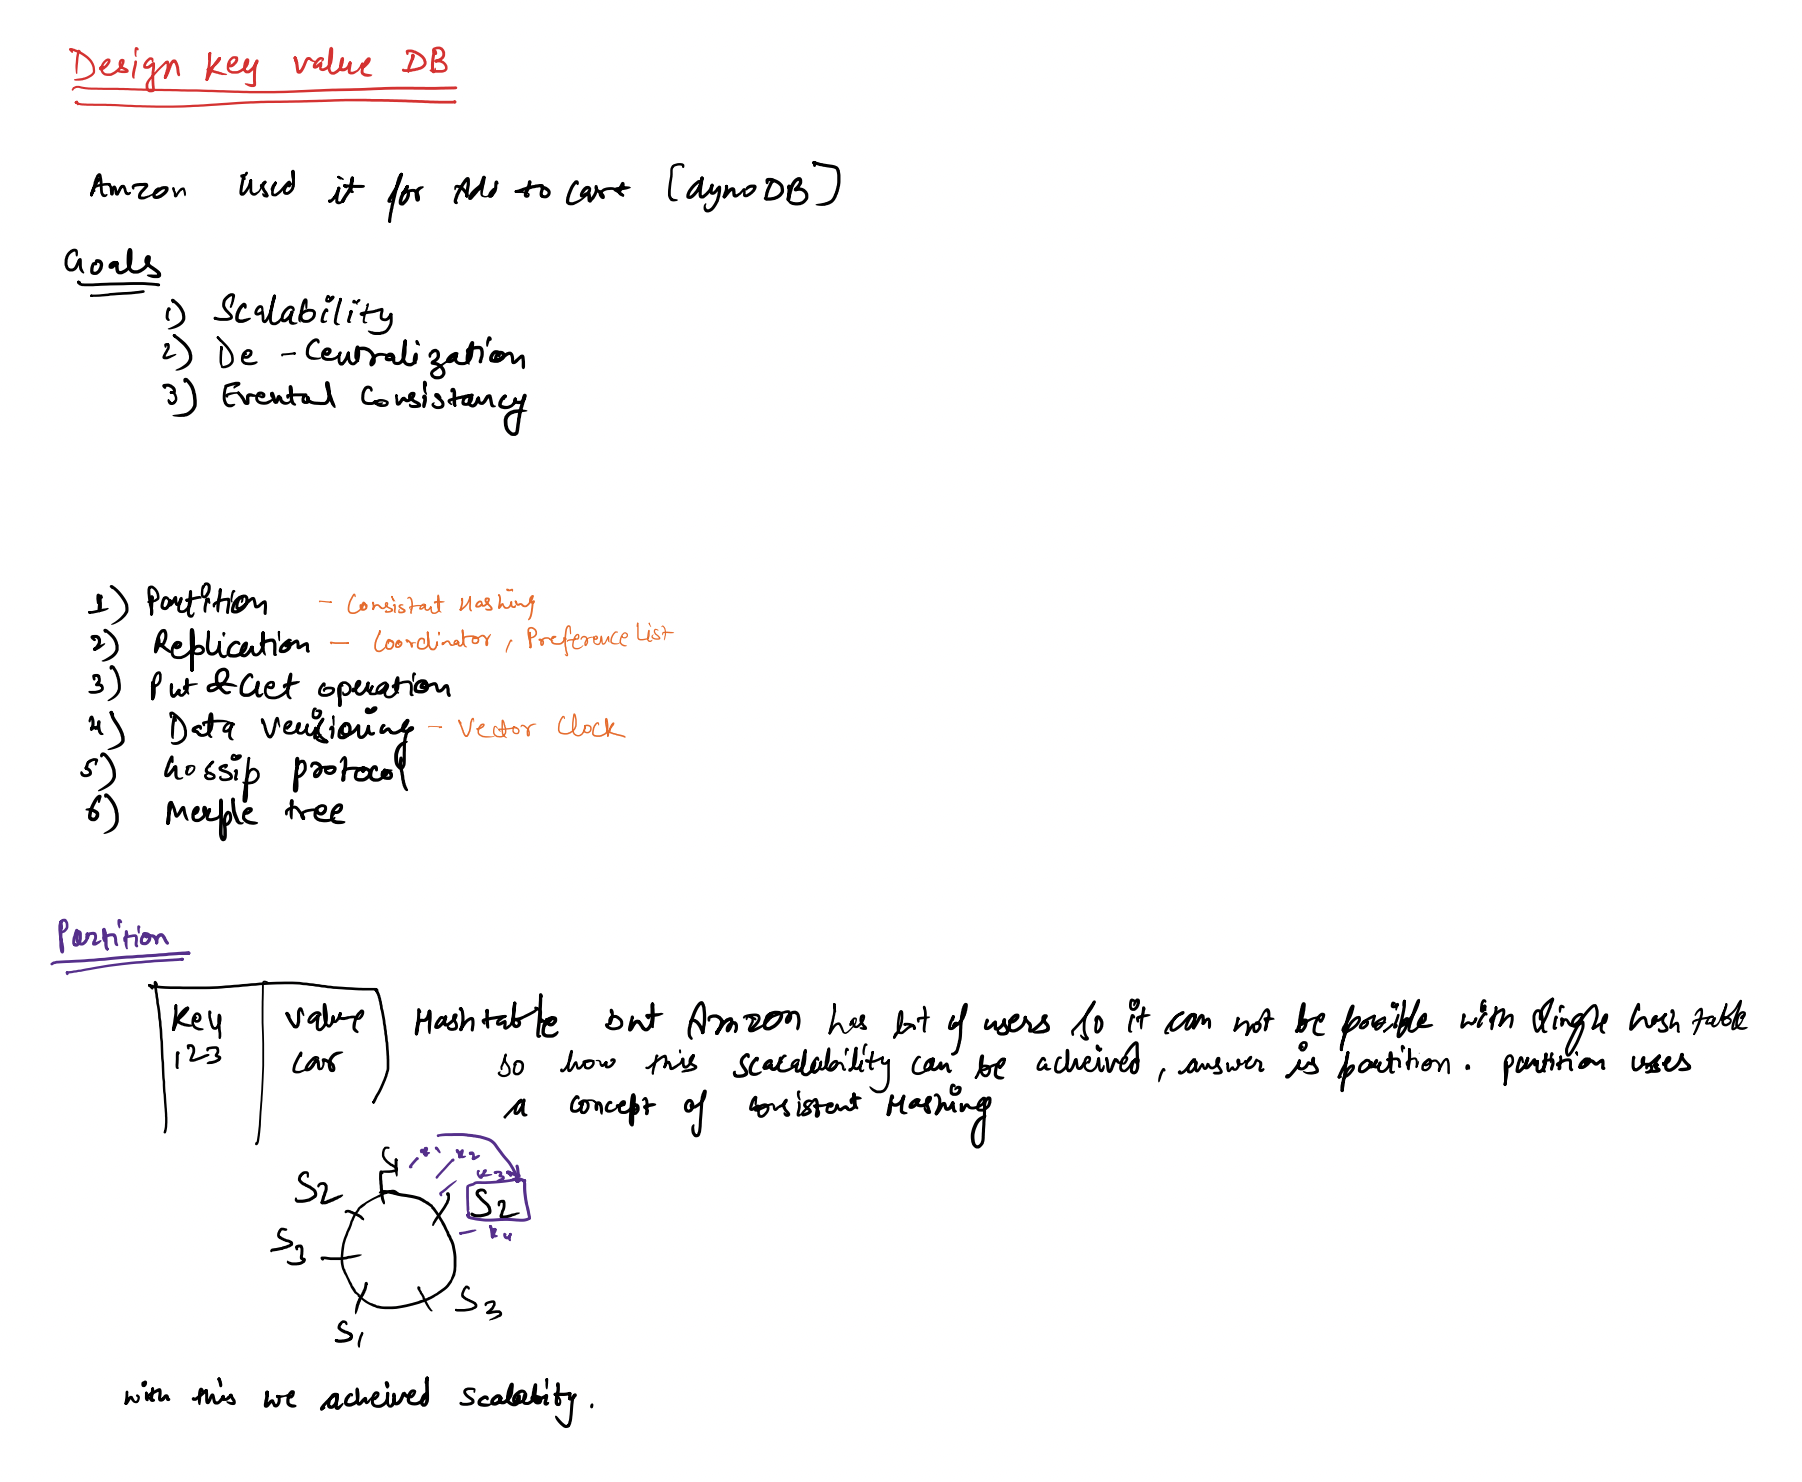 Design key value DB
Amzon used it for Add to cart [dynoDB]
Goals
1) Scalability
2) De - Centralization
3) Evental Consistancy
1) Partition - Consistant Hashing
2) Replication - Coordinator, Preference List
3) Put & Get operation
4) Data Versioning - Vector Clock
5) Gossip protocol
6) Merple tree
Partition
Key value Hashtable but Amzon has lot of users so it can not be possible with single hash table
123 car so how this scacalability can be acheived, answer is partition. partition uses
a concept of consistent Hashing
k1 k2
S2 k3
S2
S3 k4
S3
S1
with this we acheived scalabity.